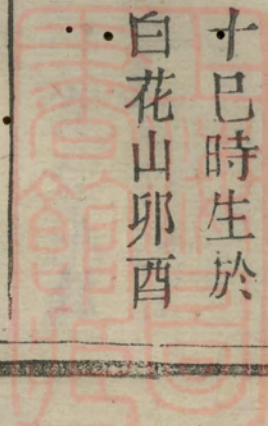 十巳時生於
白花山卯酉